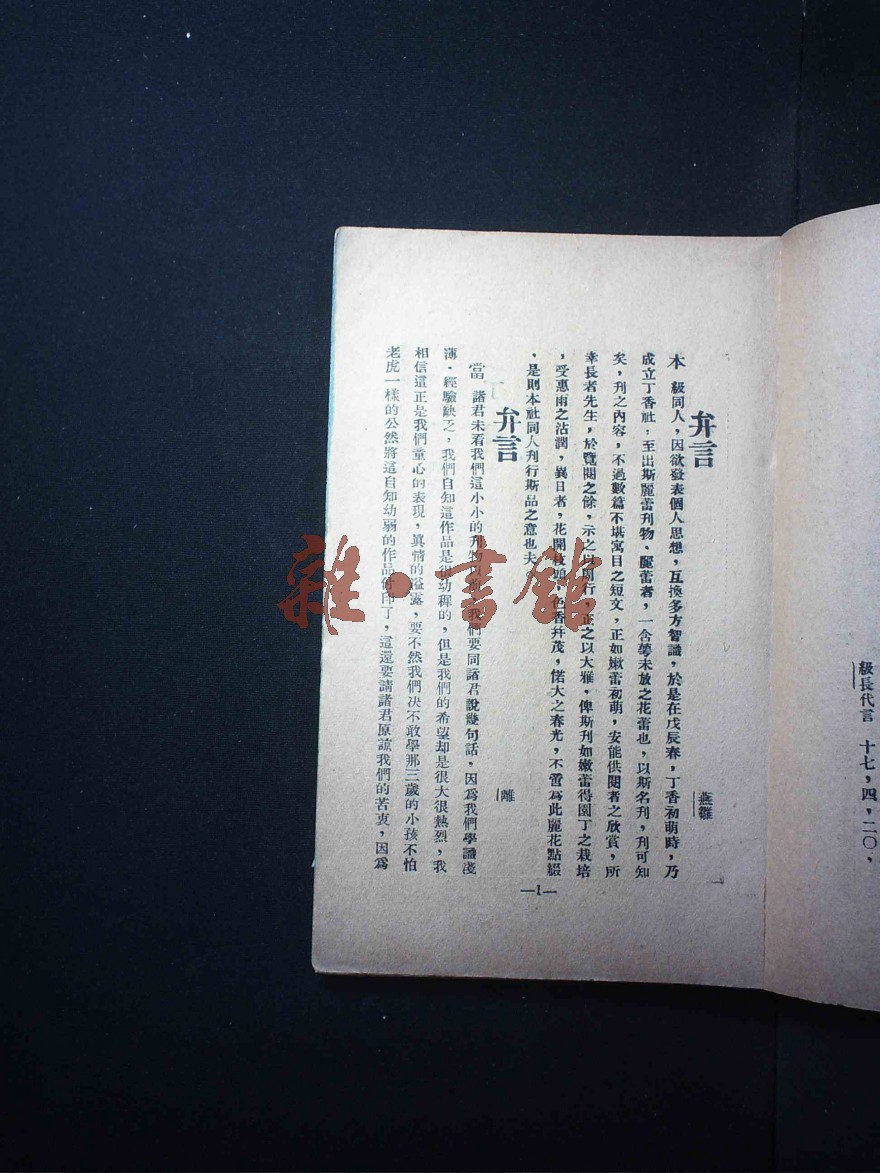 級長代言　十七，四，二〇，
弁言
燕雛
本　級同人，因欲發表個人思想，互換多方智識，於是在戊辰春，丁香初萌時，乃
成立丁香社，至出斯麗蕾刋物、麗蕾者，一含萼未放之花蕾也，以斯名刋，刋可知
矣，刋之內容，不過數篇不堪寓目之短文，正如嫩蕾初萌，安能供閱者之欣賞，所
幸長者先生，於覽閱之餘，示之以周行，正之以大雅、俾斯刋如嫩蕾得園丁之栽培
，受惠雨之沾潤，異日者，花開枝頭，色香幷茂，偌大之春光，不啻爲此麗花點綴
、是則本社同人刋行斯品之意也夫
弁言
離
當　諸君未看我們這小小的刋物　我們要同諸君說幾句話，因爲我們學識淺
薄、經驗缺乏，我們自知這作品是很幼穉的，但是我們的希望却是很大很熱烈，我
相信這正是我們童心的表現，眞情的溢露，要不然我們决不敢學那三歲的小孩不怕
老虎一樣的公然將這自知幼弱的作品　印了，這還要請諸君原諒我們的苦衷，因爲
—1—
雜·書館